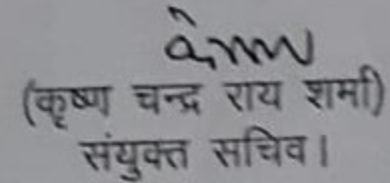 (कृष्ण चन्द्र राय शर्मा)
संयुक्त सचिव।